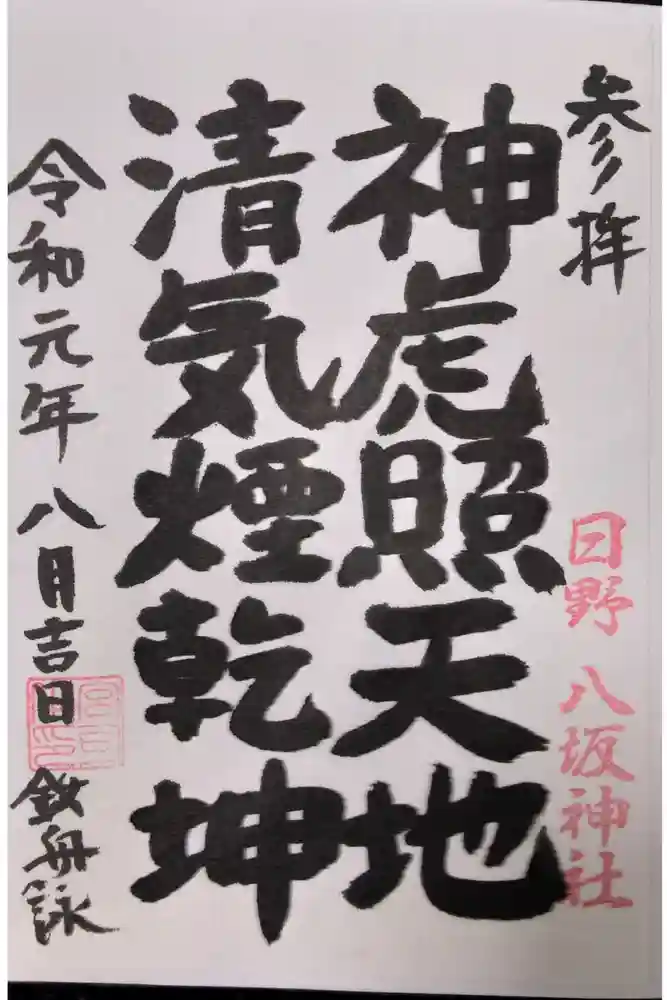 参拝
日野 八坂神社
神虎照天地
清気煙乾坤
令和元年八月吉日
舟詠